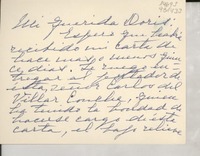 Mi Querida Doris:
Espero que hayas
recibido mi carta de
hace más o menos quin
ce días. Te ruego en-
tregar al portador de
ésta, señor Carlos del
Villar Concha, quien
ha tenido la bondad de
hacerse cargo de esta
carta, el